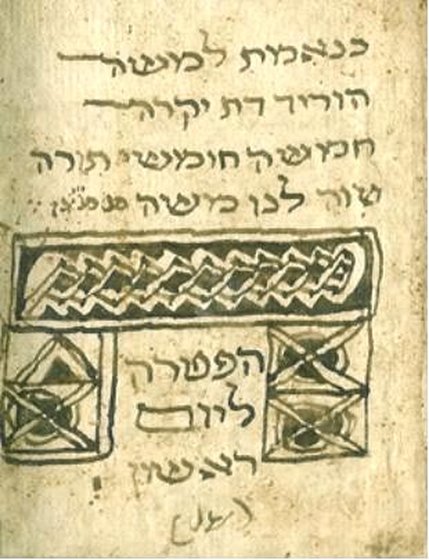 כנאמת למשה
הוריד דת יקרה
חמשה חומשי תורה
לבן משה
הפטרה
ליום
ראשון